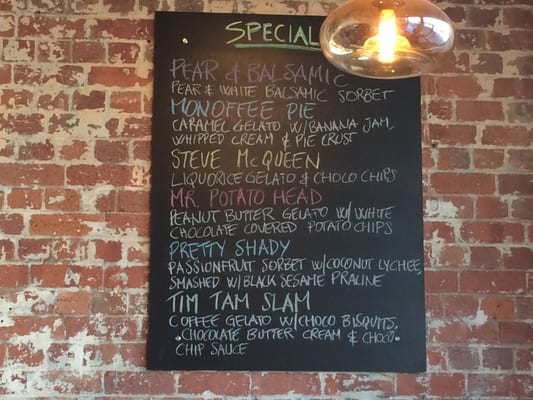 SPECIAL
PEAR & BALSAMIC
PEAR & WHITE BALSAMIC SORBET
MONOFFEE PIE
CARAMEL GELATO W/BANANA JAM,
WHIPPED CREAM & PIE CRUST
STEVE McQUEEN
LIQUORICE GELATO & CHOCO CHIPS
MR. POTATO HEAD
PEANUT BUTTER GELATO W/ WHITE
CHOCOLATE COVERED POTATO CHIPS
PRETTY SHADY
PASSIONFRUIT SORBET W/COCONUT LYCHEE
SMASHED W/BLACK SESAME PRALINE
TIM TAM SLAM
COFFEE GELATO W/CHOCO BISQUITS,
CHOCOLATE BUTTER CREAM & CHOCO
CHIP SAUCE